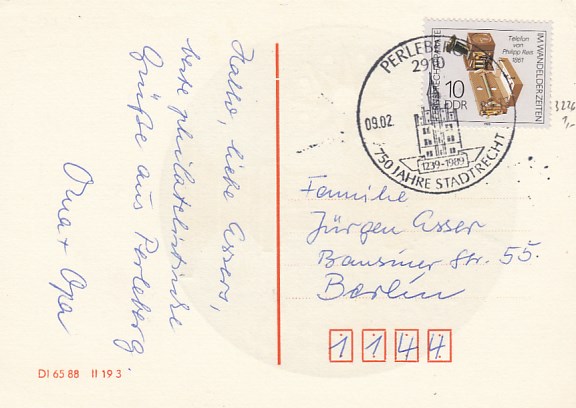 Hallo, liebe Assers,
beste philatelistische
Grüße aus Perleberg.
Oma + Opa
DI 65 88 II 19 3
PERLEBERG
2910
09.02.
1239-1989
750 JAHRE STADTRECHT
IM WANDEL DER ZEITEN
Telefon
von
Philipp Reis
1861
10
DDR
1,-
Familie
Jürgen Asser
Bansiner Str. 55.
Berlin
1144